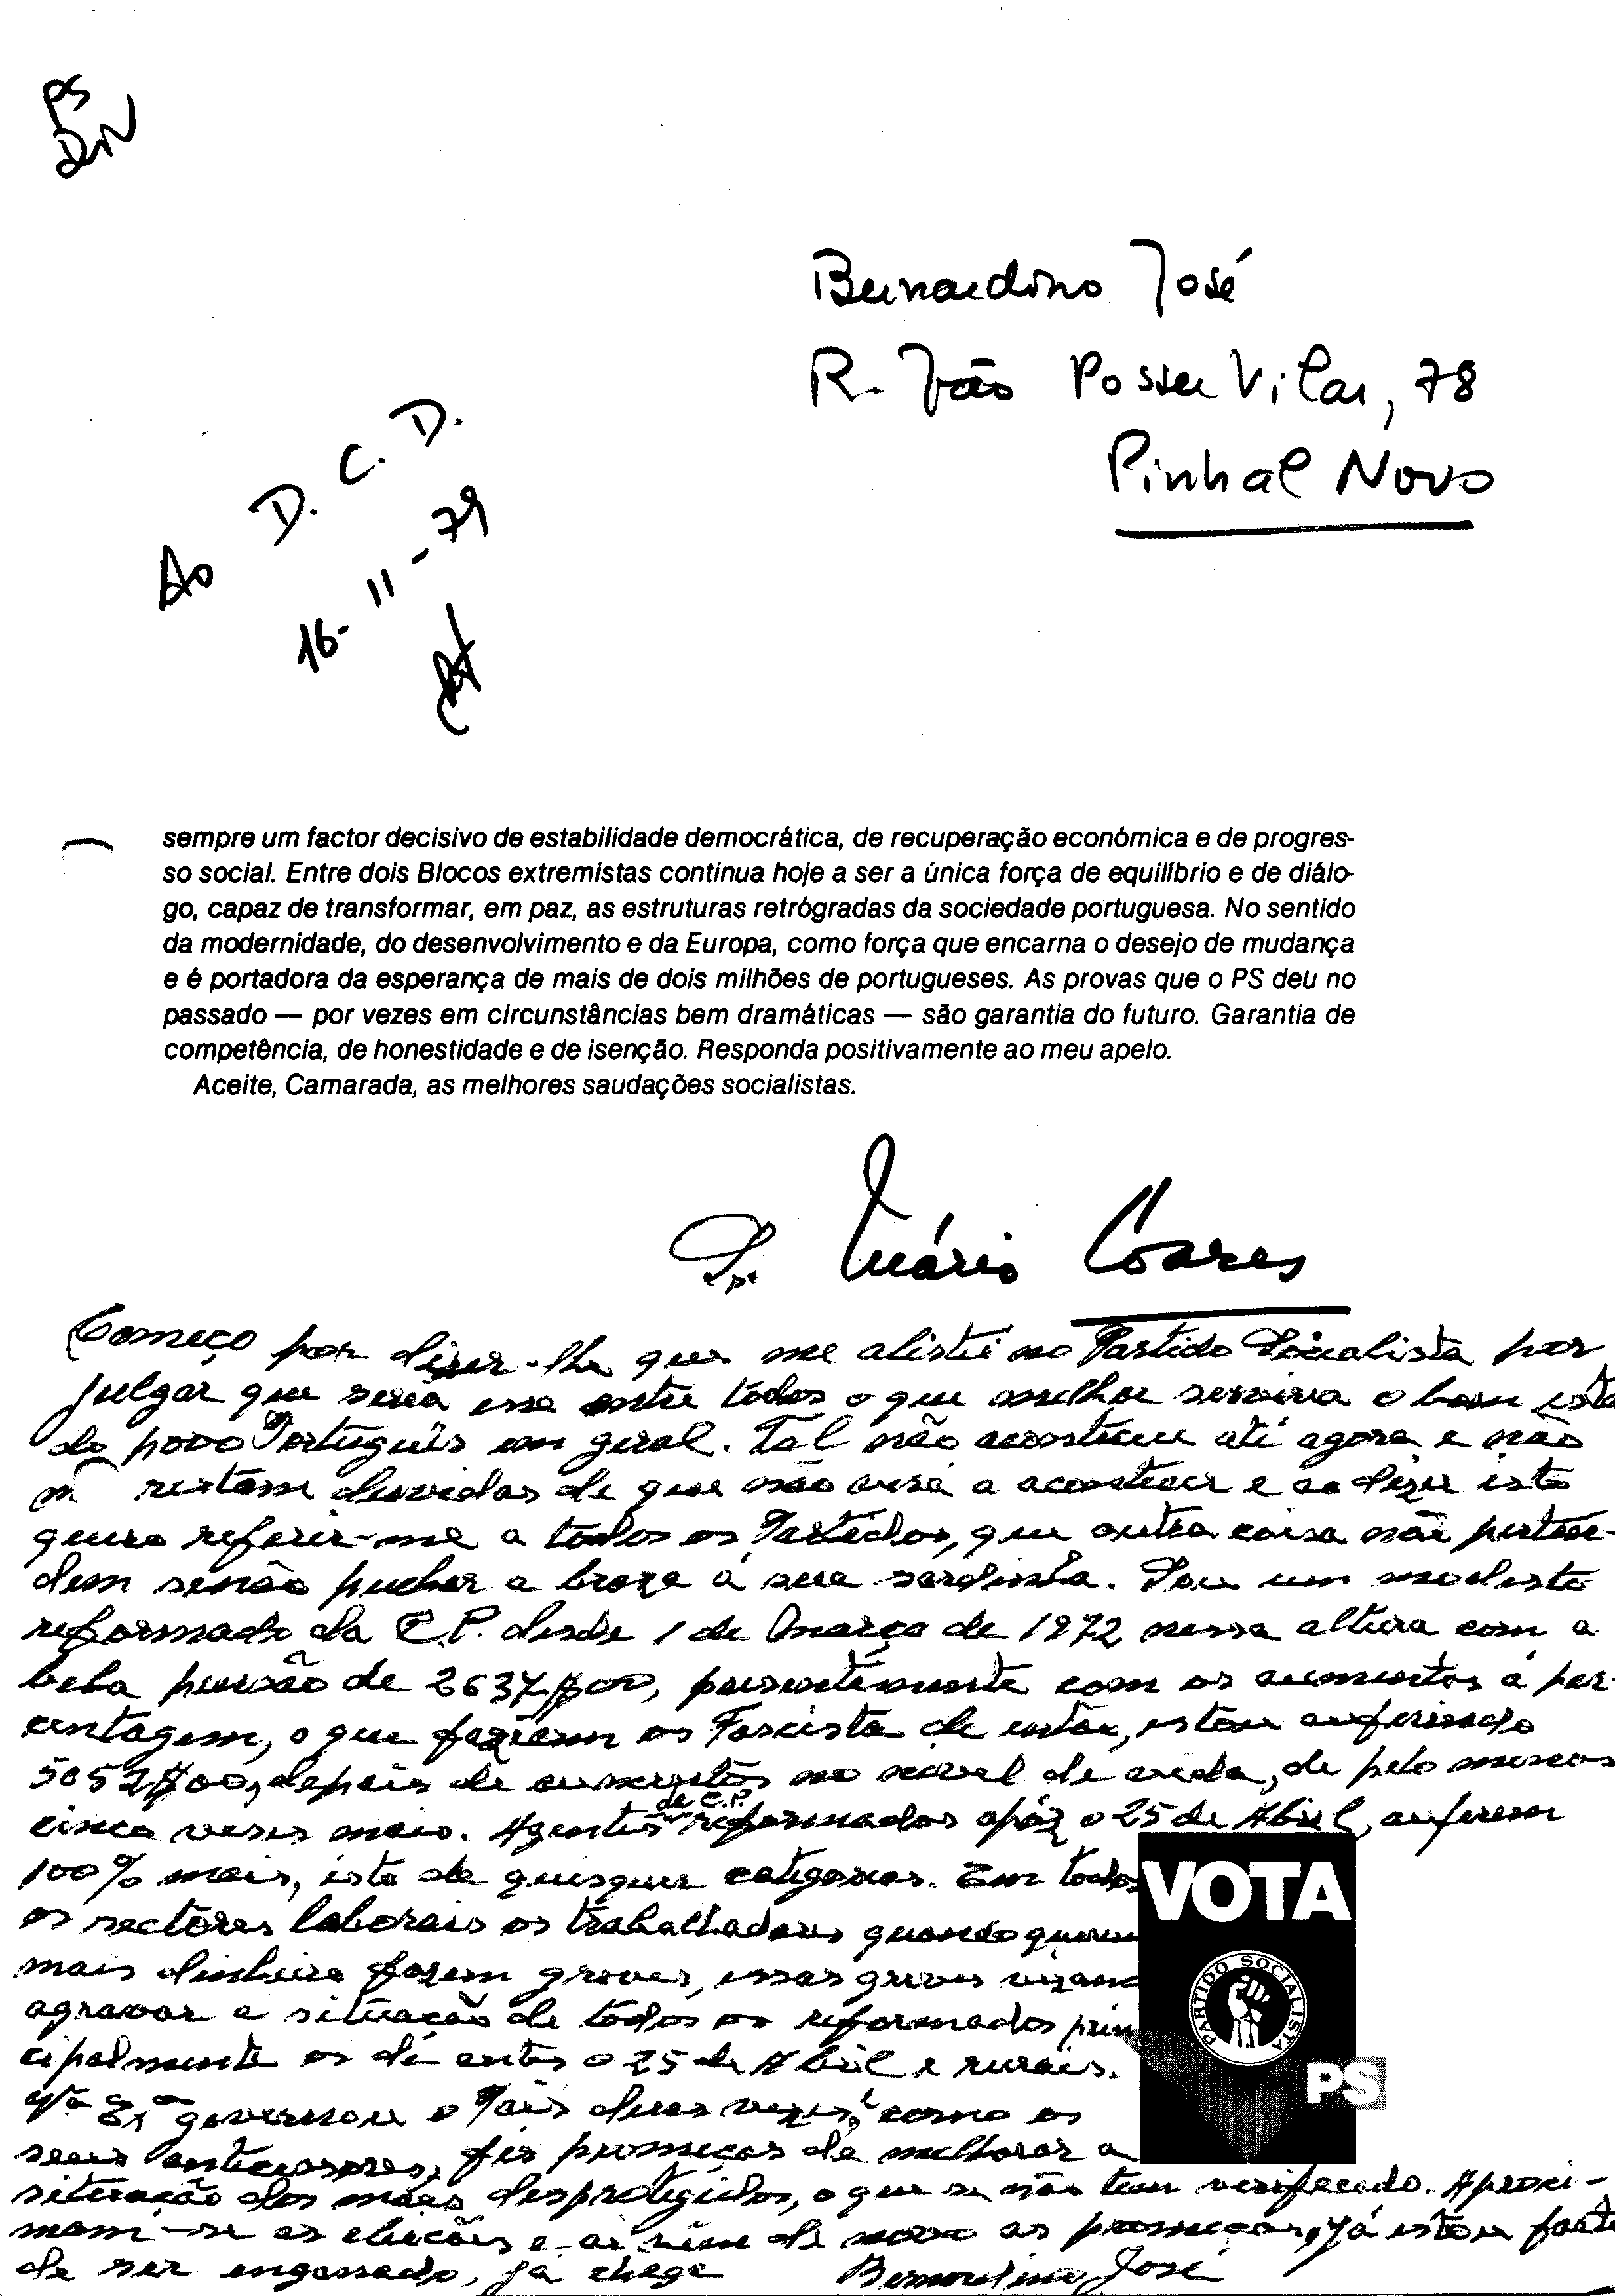 PS
DIV
Bernardino José
R. João Posser Vilar, 78
Pinhal Novo
Ao D. C. D.
16-11-79
sempre um factor decisivo de estabilidade democrática, de recuperação económica e de progres-
so social. Entre dois Blocos extremistas continua hoje a ser a única força de equilíbrio e de diálo-
go, capaz de transformar, em paz, as estruturas retrógradas da sociedade portuguesa. No sentido
da modernidade, do desenvolvimento e da Europa, como força que encarna o desejo de mudança
e é portadora da esperança de mais de dois milhões de portugueses. As provas que o PS deu no
passado — por vezes em circunstâncias bem dramáticas — são garantia do futuro. Garantia de
competência, de honestidade e de isenção. Responda positivamente ao meu apelo.
Aceite, Camarada, as melhores saudações socialistas.
Dr. Mário Soares
Começo por dizer-lhe que me alistei no Partido Socialista por
julgar que seria esse entre todos o que melhor serviria o bem esta
do povo Português em geral. Tal não aconteceu até agora e não
m restam duvidas de que não virá a acontecer e ao dizer isto
quero referir-me a todos os Partidos, que outra coisa não preten-
dem senão puchar a braza á sua sardinha. Sou um modesto
reformado da C.P. desde 1 de Março de 1972 nessa altura com a
bela pensão de 2637$00, presentemente com os aumentos á per-
centagem, o que faziam os Fascista de então, estou auferindo
5052$00, depois de aumentos no nivel de vida, de pelo menos
cinco vezes mais. Agentes da C.P. reformados após o 25 de Abril, auferem
100% mais, isto de quisquer categorias. Em todos
os sectores laborais os trabalhadores quando querem
mais dinheiro fazem greves, essas greves visam
agravar a situação de todos os reformados prin
cipalmente os de antes o 25 de Abril e rurais.
Vª Exª governou o Pais duas vezes, como os
seus antecessores, fez promeças de melhorar a
situação dos mais desprotegidos, o que se não tem verificado. Aproxi-
mam-se as eleicões e ai vem de novo as promeças, já estou farto
de ser enganado, já chega Bernardino José
VOTA
PARTIDO SOCIALISTA
PS